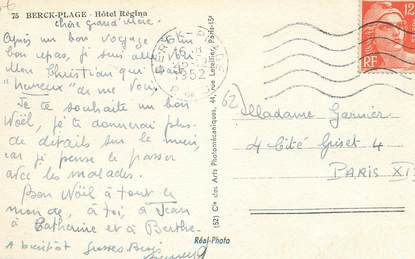 75 BERCK-PLAGE - Hôtel Régina
chère grand'mère.
Après un bon voyage et un
bon repas, je suis allée voir
Mon Christian qui était
"heureux" de me voir.
Je te souhaite un bon
Noël, je te donnerai plus
de détails sur le mien,
car je pense le passer
avec les malades.
Bon Noël à tout le
monde, à toi, à Jean
à Catherine et à Berthe.
A bientôt Grosses Bises
(52) Cie des Arts Photomécaniques, 44, rue Letellier, Paris-15e
Réal-Photo
BERCK-P
1952
12
RF
62
Madame Garnier
4 Cité Griset 4
PARIS XI